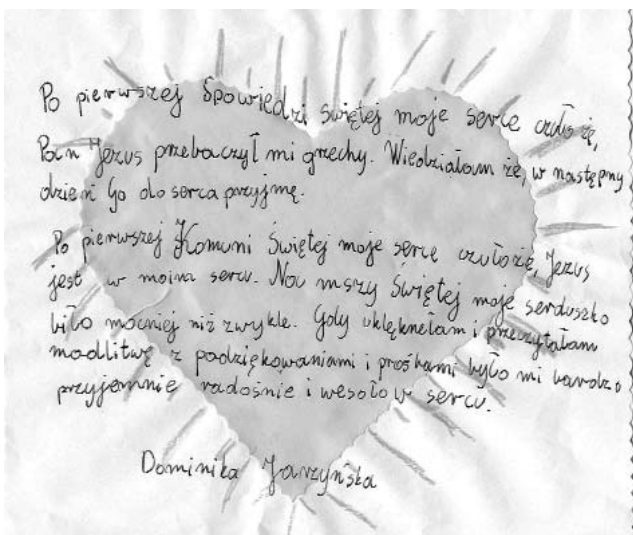 Po pierwszej Spowiedzi Świętej moje serce czuło że,
Pan Jezus przebaczył mi grzechy. Wiedziałam że, w następny
dzień Go do serca przyjmę.
Po pierwszej Komuni Świętej moje serce czuło że, Jezus
jest w moim sercu. Na mszy Świętej moje serduszko
biło mocniej niż zwykle. Gdy uklęknełam i przeczytałam
modlitwę z podziękowaniami i prośbami było mi bardzo
przyjemnie radośnie i wesoło w sercu.
Dominika Jarzyńska